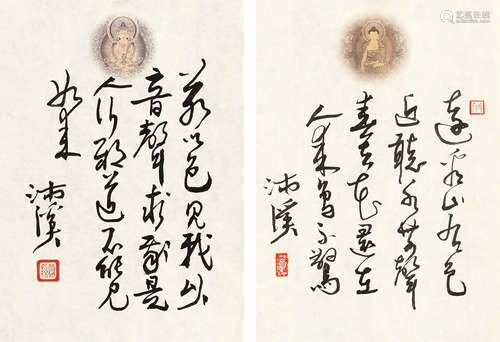 若以色見我以
音聲求我是
人行邪道不能見
如來
沛溪
遠看山有色
近聽水無聲
春去花還在
人來鳥不驚
沛溪
艺狐在线